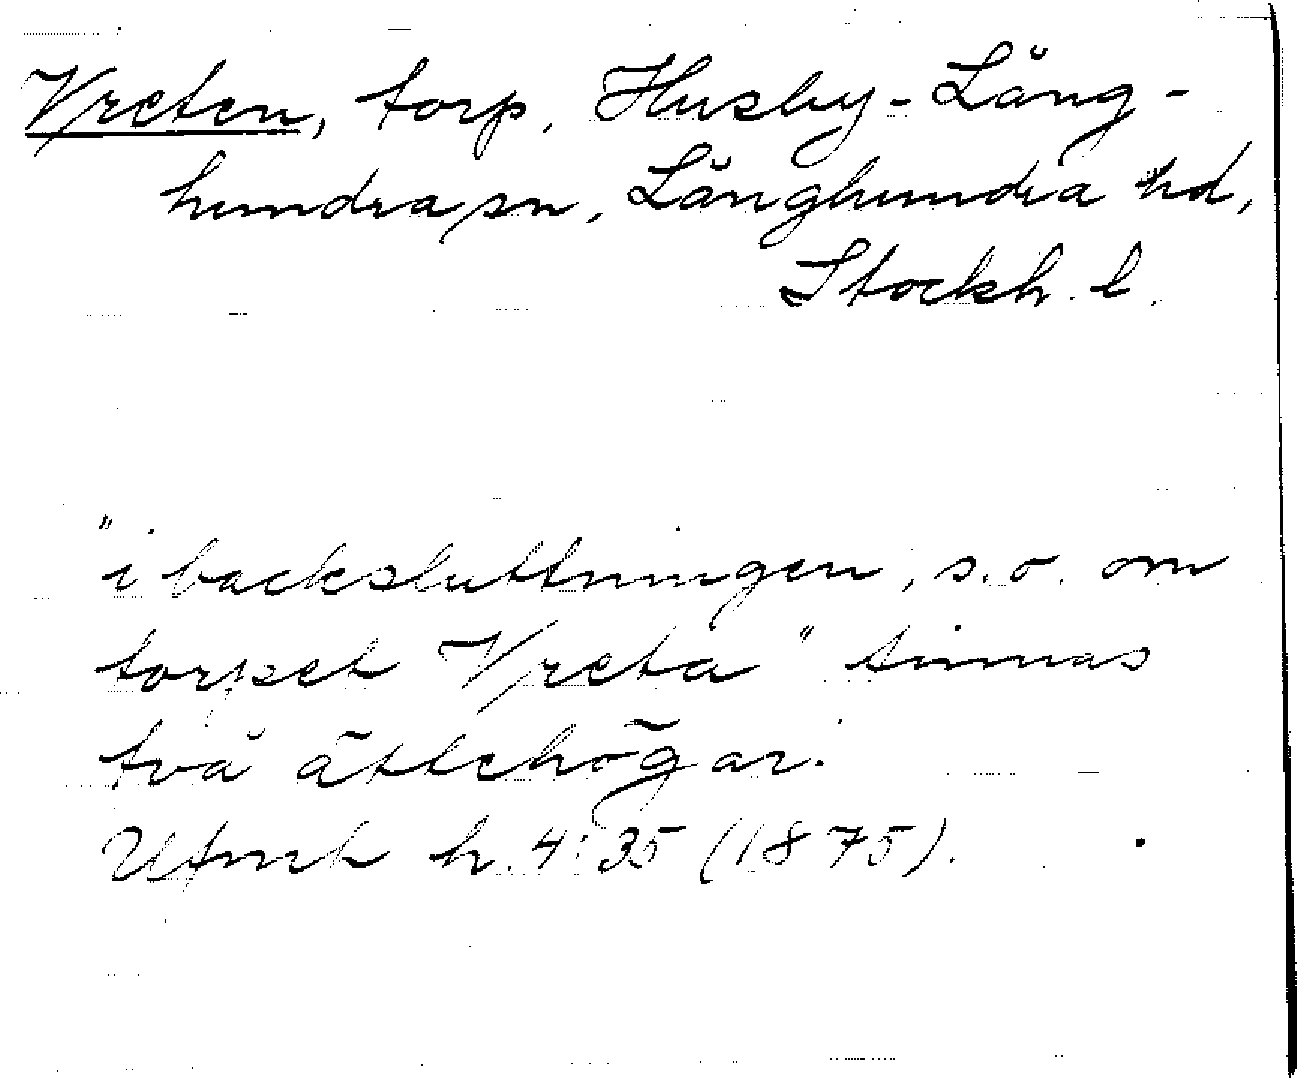 Vreten, torp, Husby-Lång-
hundra sn, Långhundra hd,
Stockh. l.
"i backsluttningen, s.o. om
torpet Vreta" finnas
två ättehögar.
Ufmt h. 4:35 (1875).